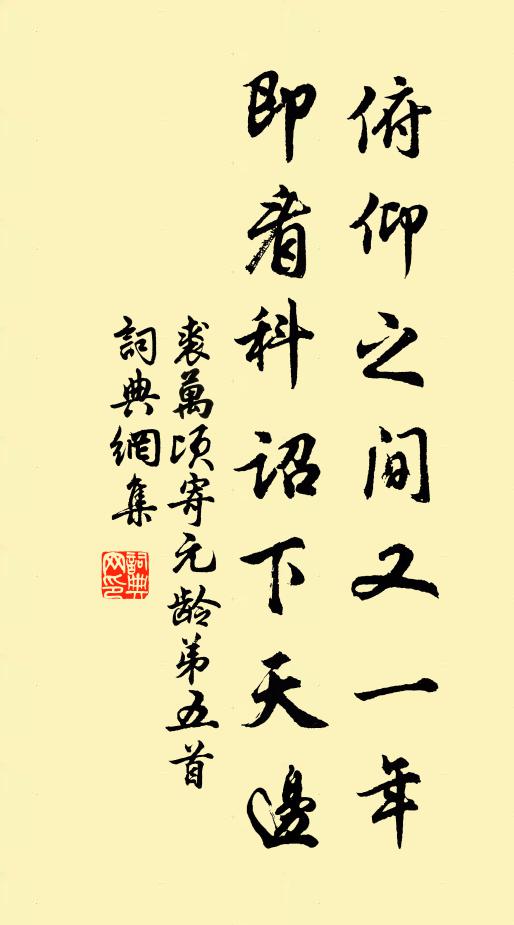 俯仰之间又一年
即看科詔下天邊
裘萬頃寄元龄第五首
詞典網集
詞典
网印